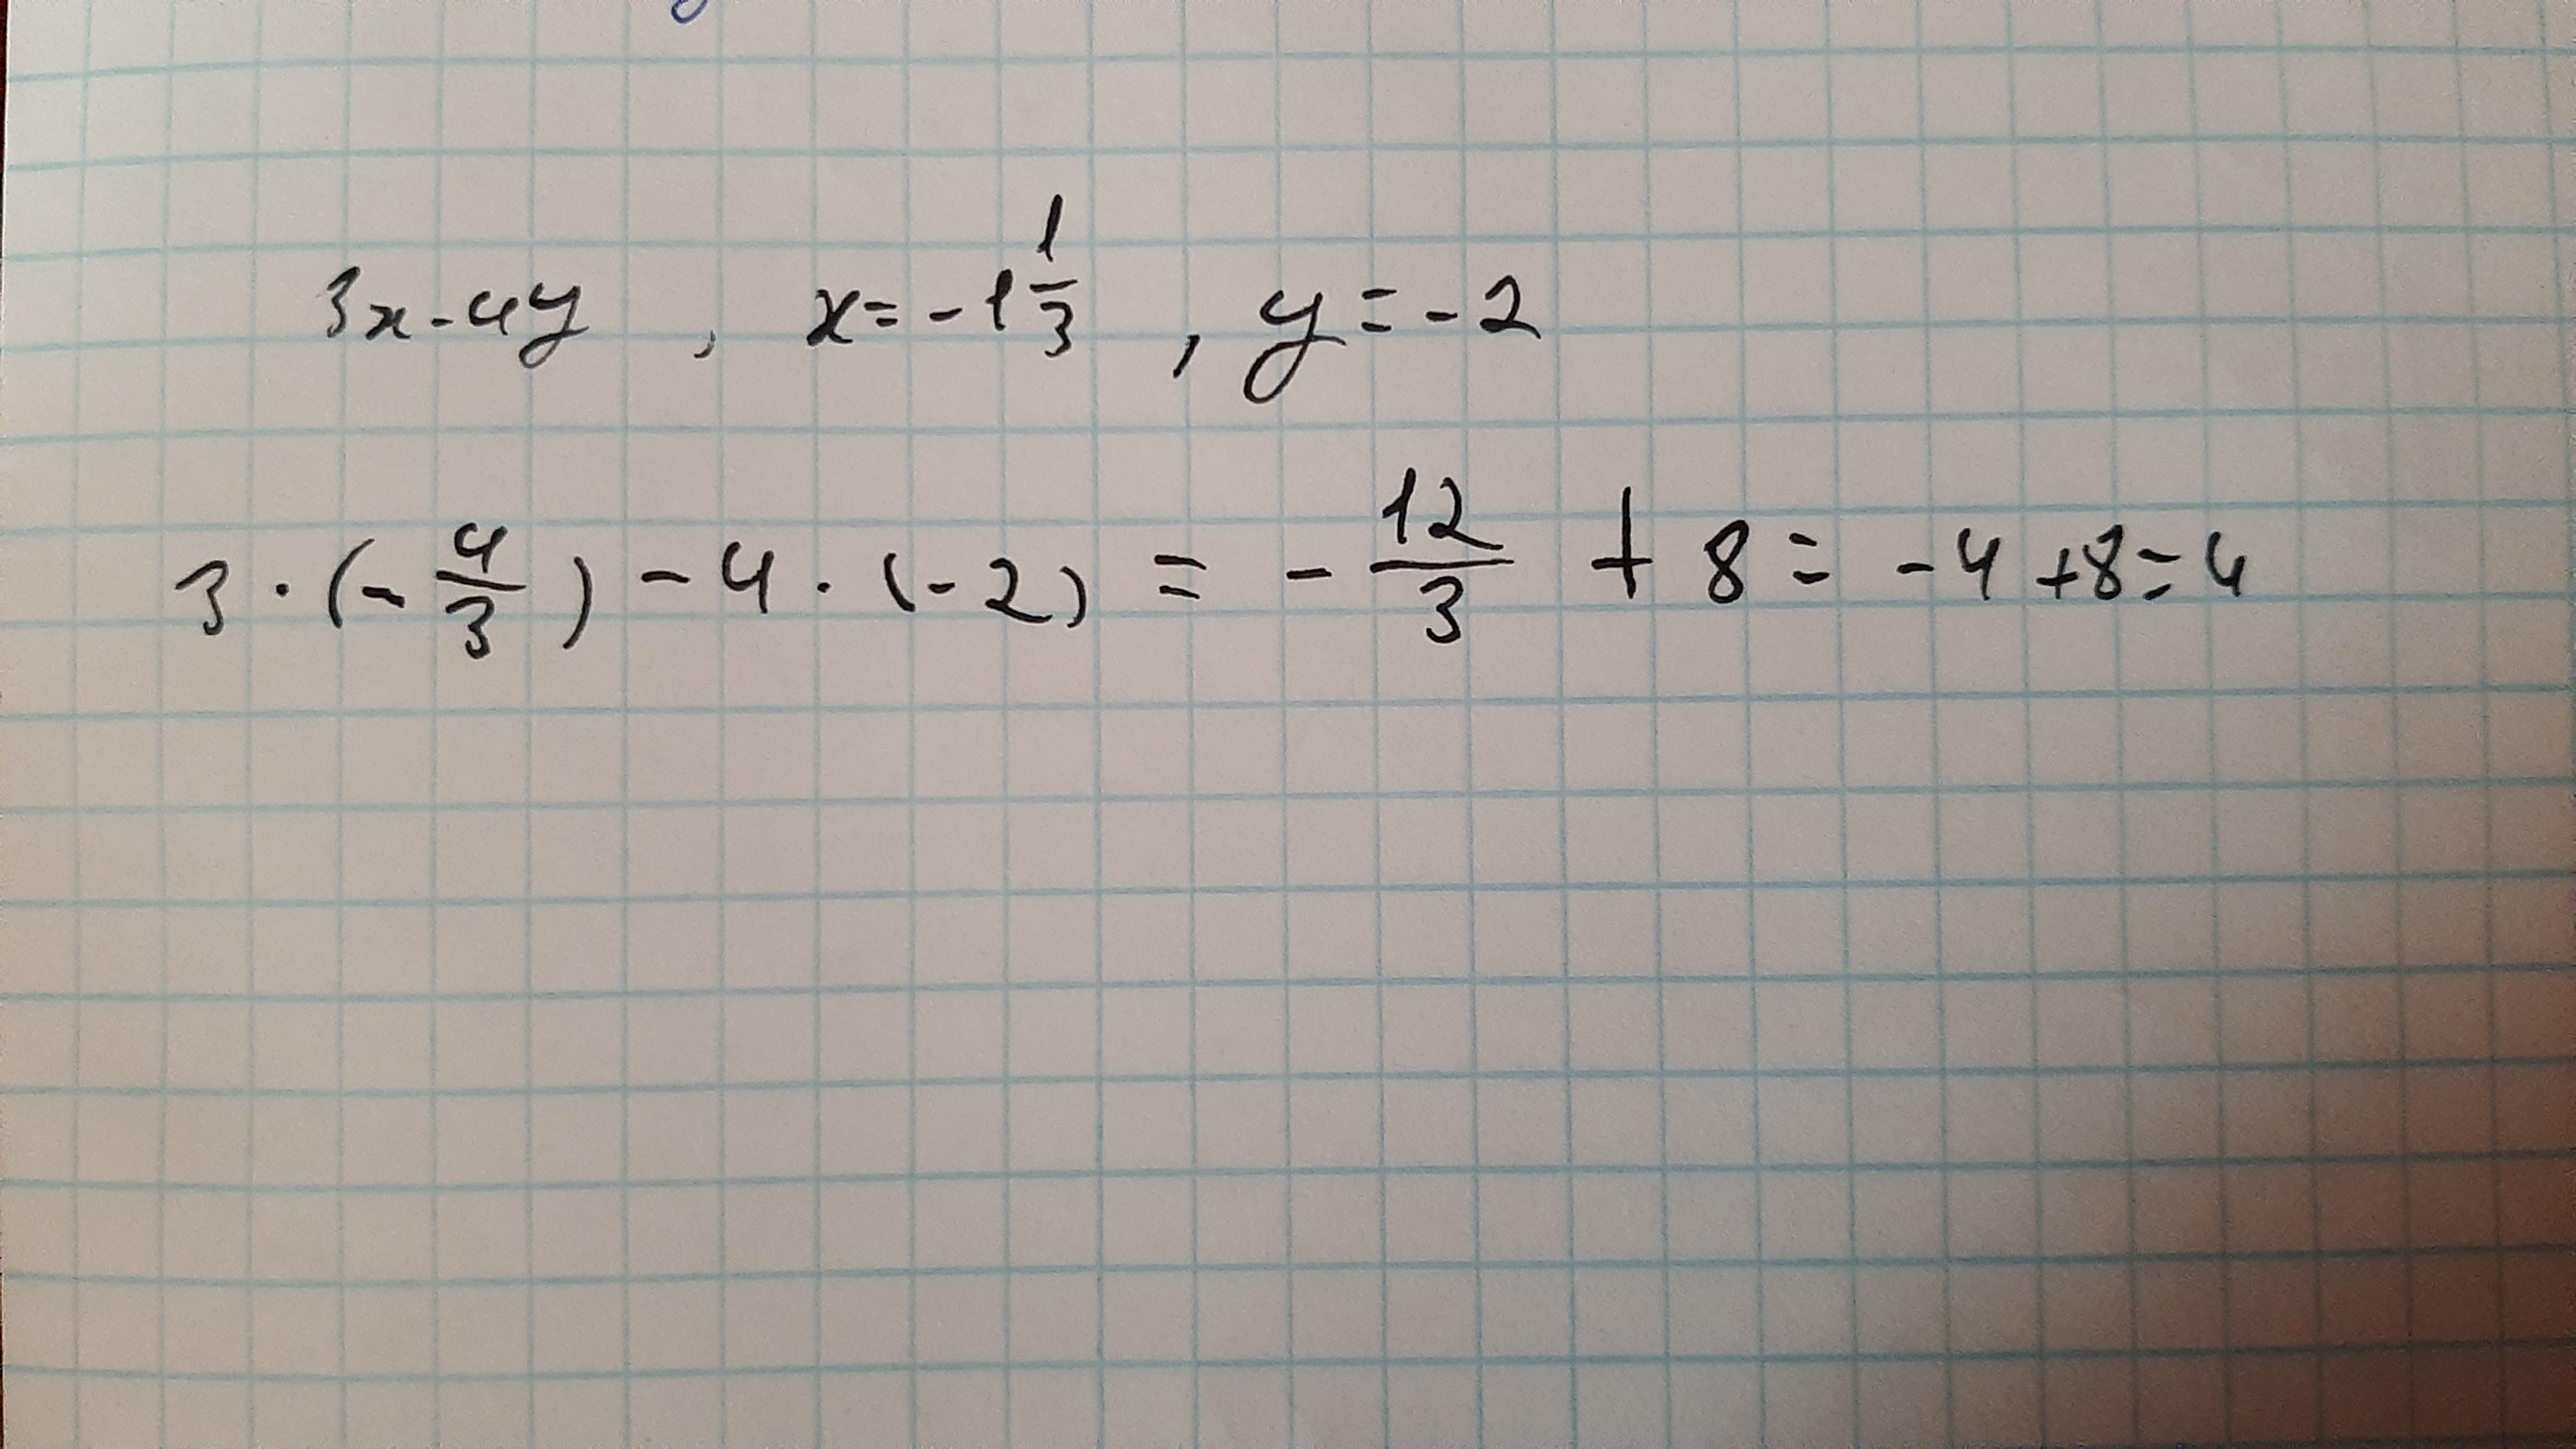 3x-4y , x=-1 1/3 , y=-2
3·(-4/3)-4·(-2)=-12/3+8=-4+8=4